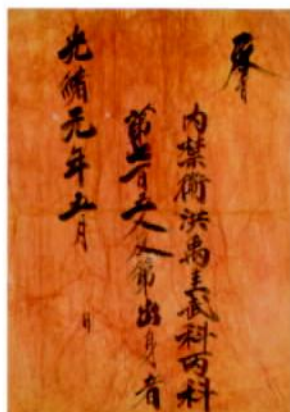 敎旨
內禁衛洪禹圭武科丙科
第百五人及第出身者
光緖元年五月　日